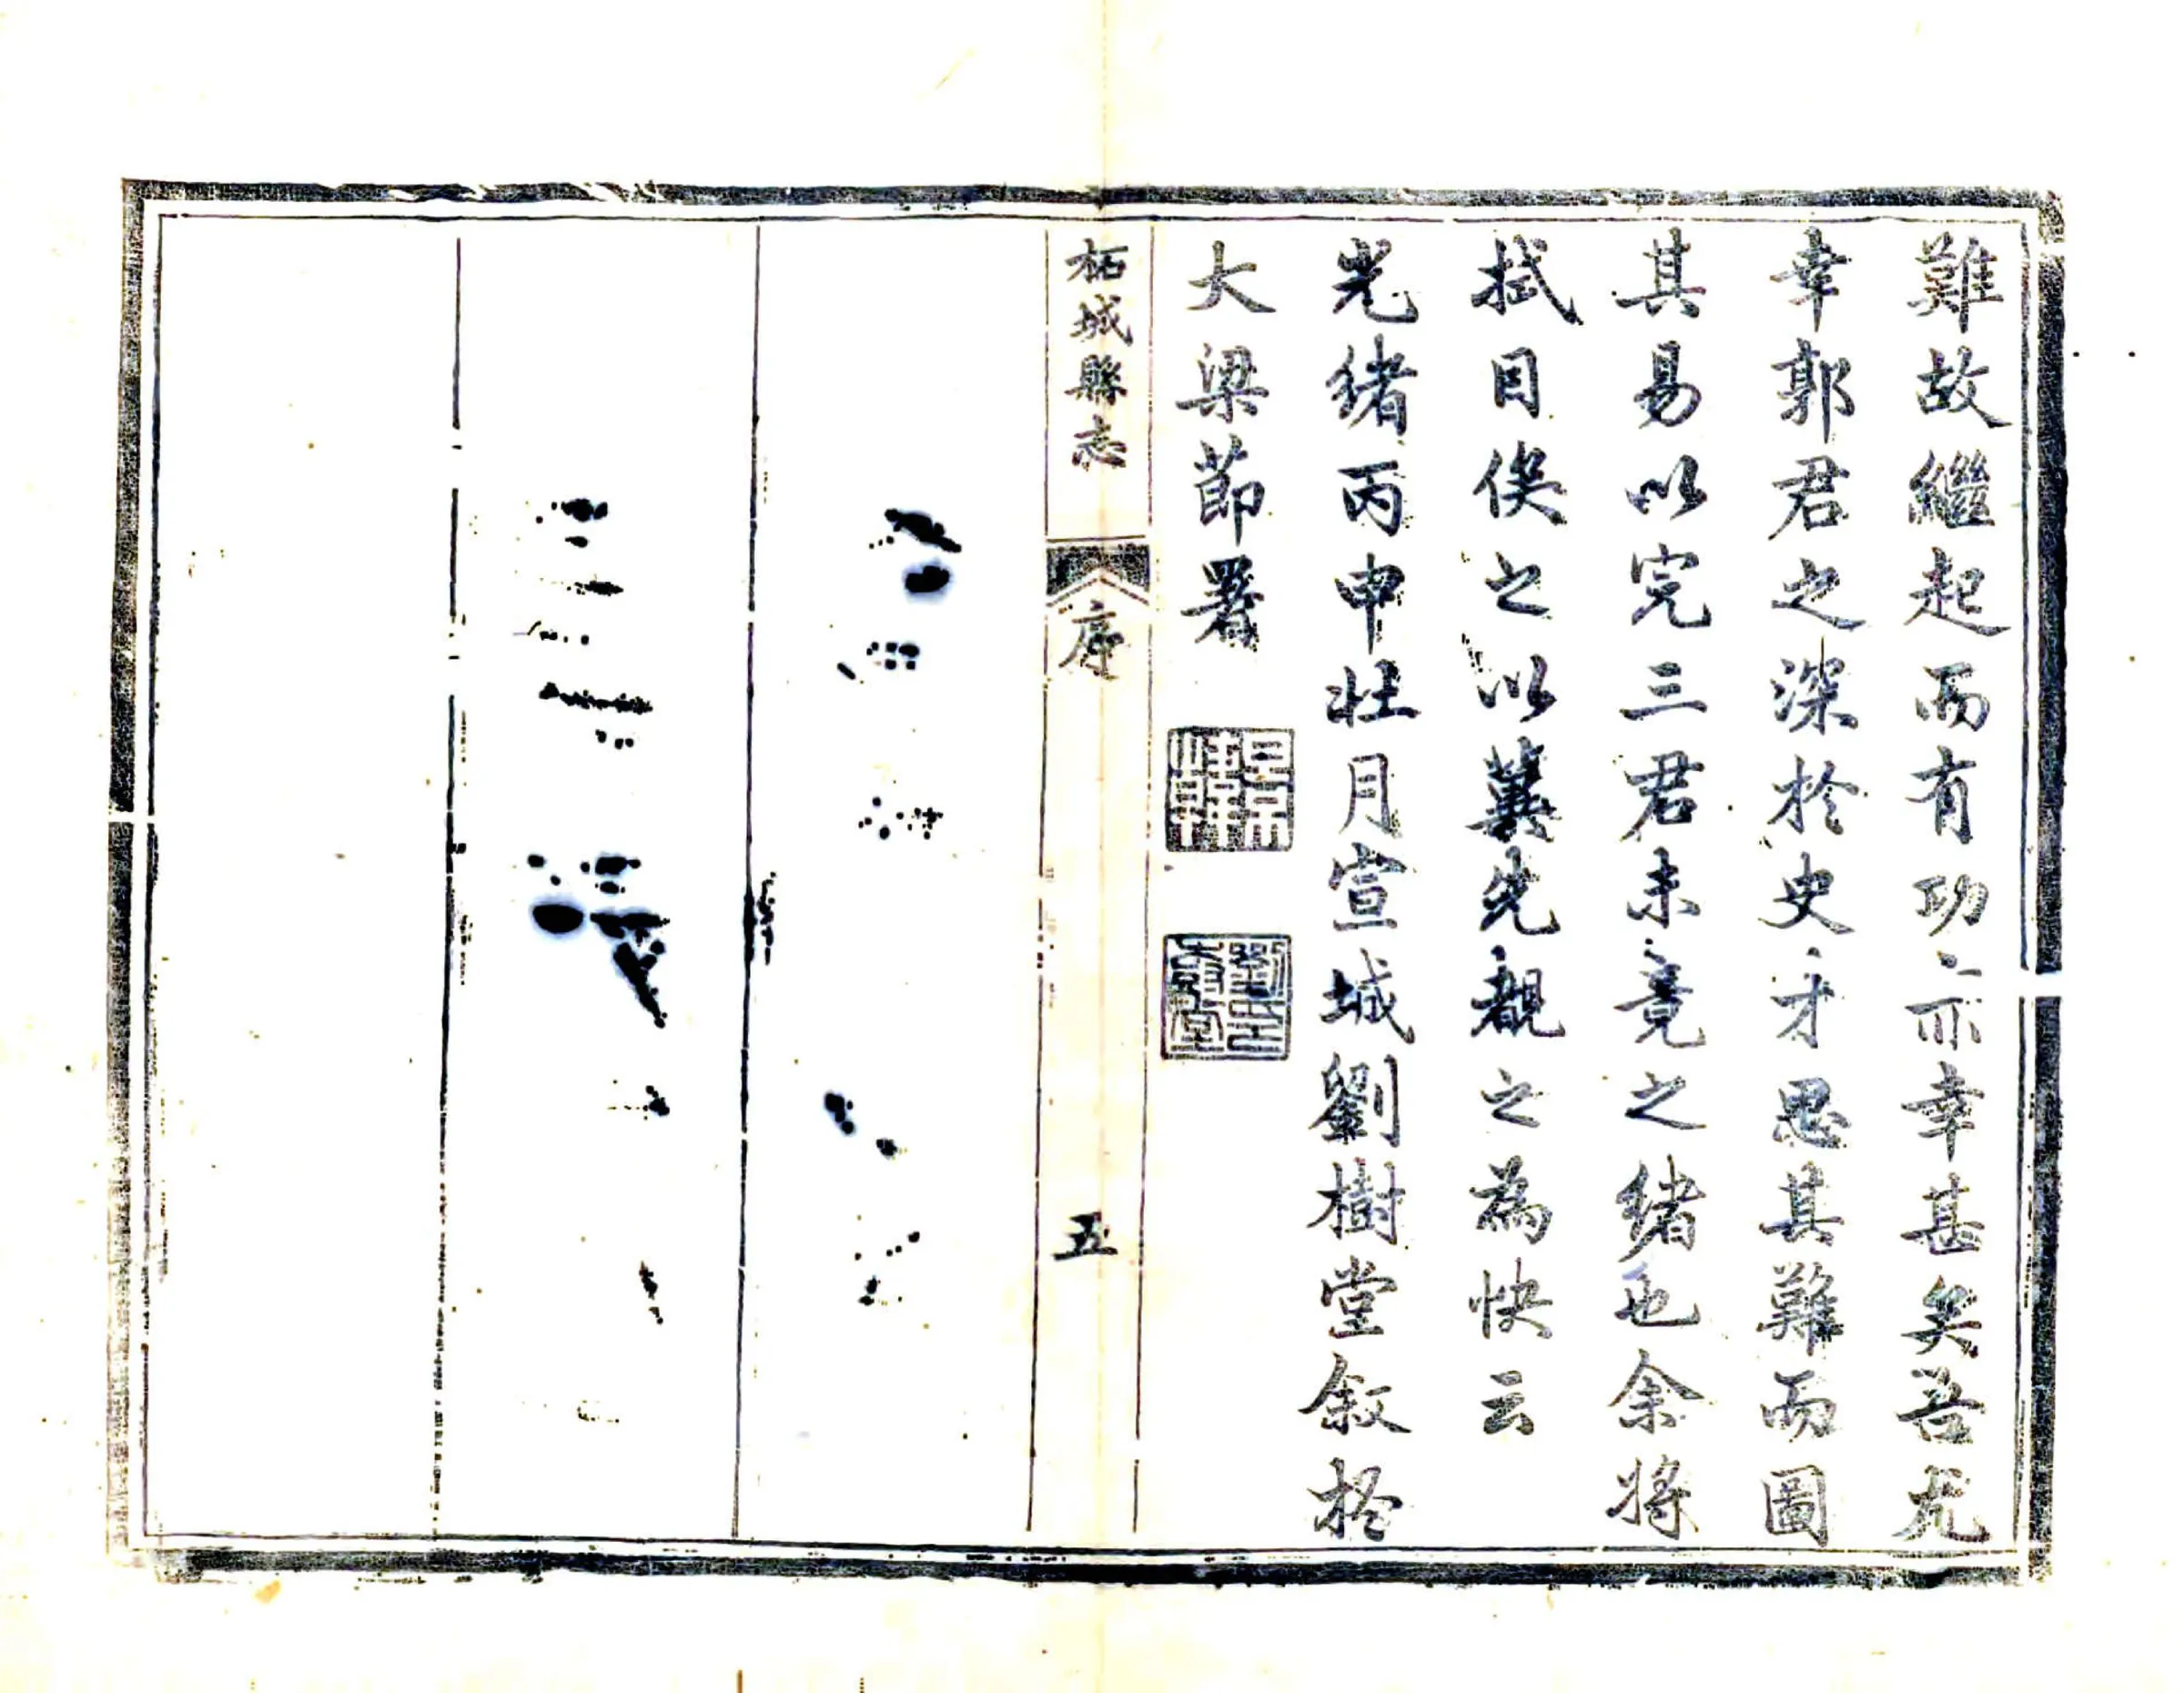 難故繼起而有功亦幸甚矣吾尤
幸郭君之深於史才思其難而圖
其易以完三君未竟之緒也余將
拭目俟之以蘄先覩之為快云
光緒丙申壯月宣城劉樹堂敘於
大梁節署
柘城縣志
序
五